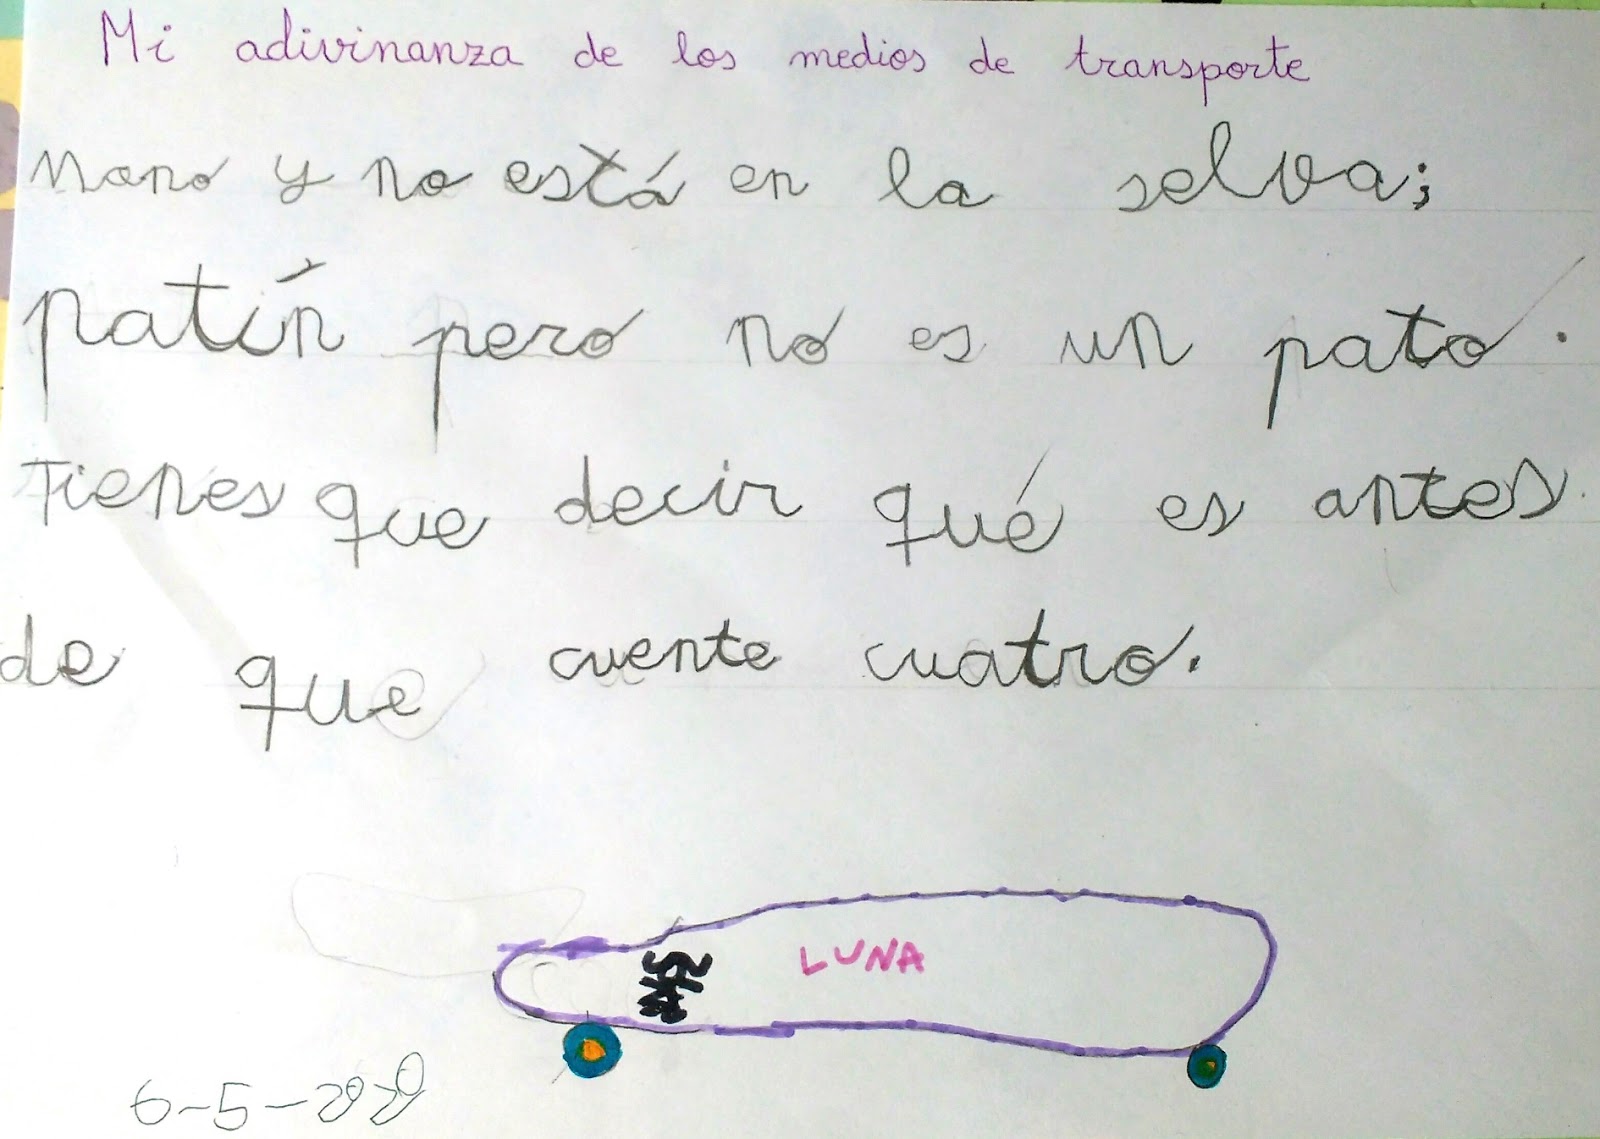 Mi adivinanza de los medios de transporte
Mono y no está en la selva;
patín pero no es un pato.
Tienes que decir qué es antes
de que cuente cuatro.
LUNA
6-5-2020